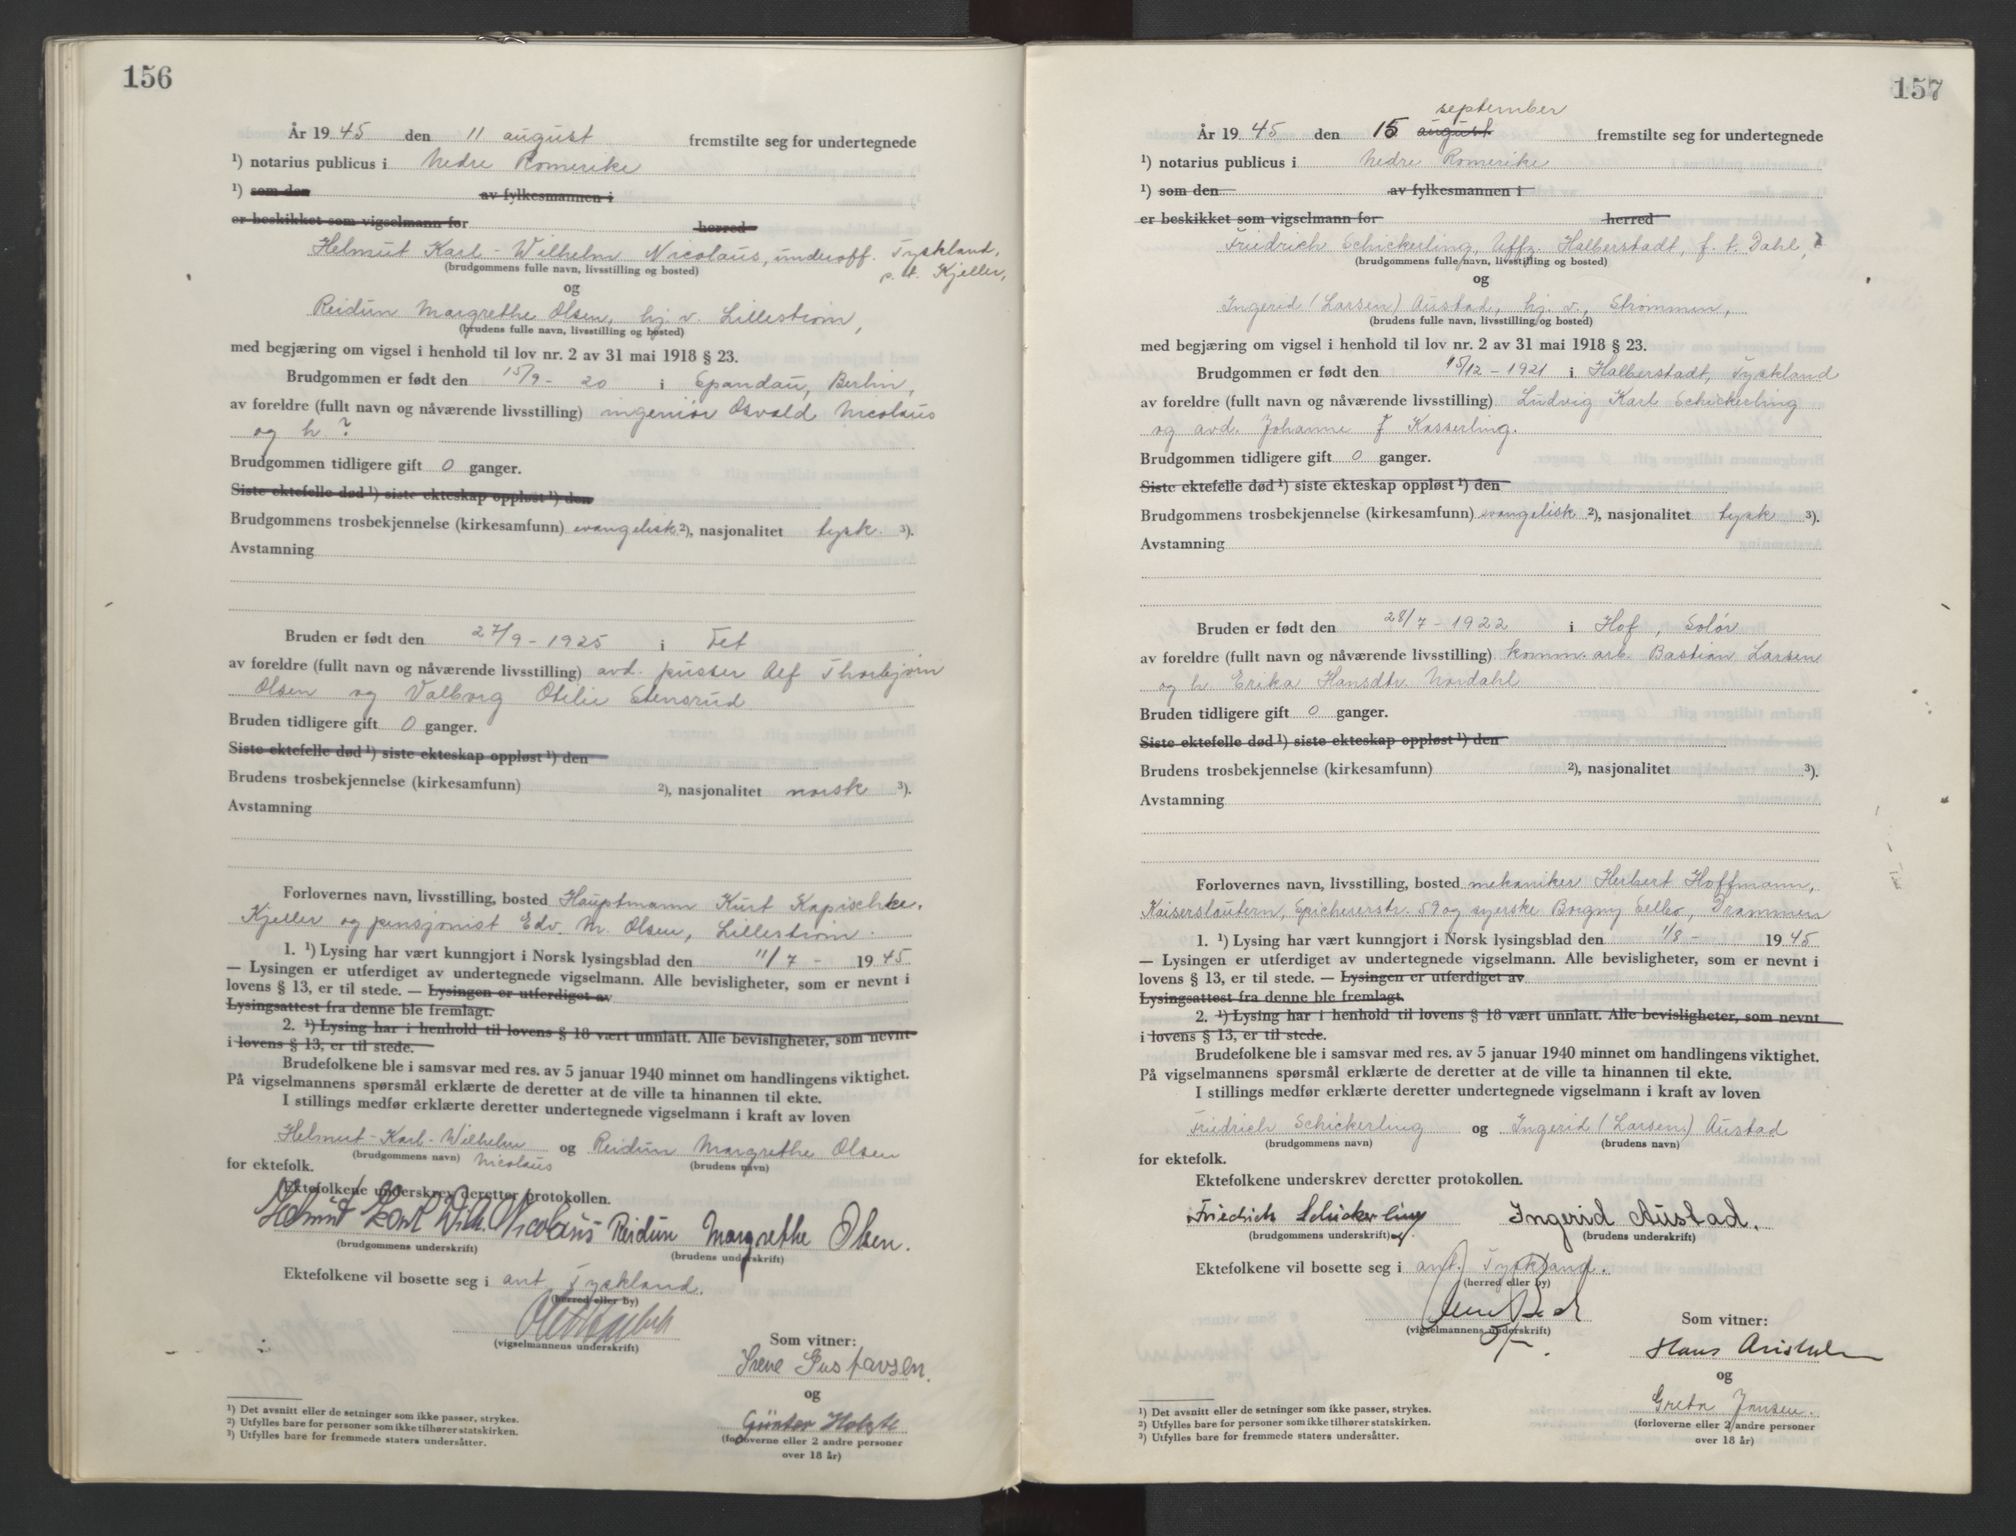 156
År 19 45 den 11 august fremstilte seg for undertegnede
¹) notarius publicus i Nedre Romerike
¹) som den av fylkesmannen i
er beskikket som vigselmann for herred
Helmut Karl-Wilhelm Nicolaus, underoff. Tyskland,
(brudgommens fulle navn, livsstilling og bosted) p.t. Kjeller,
og
Reidun Margrethe Olsen, hj. v. Lillestrøm,
(brudens fulle navn, livsstilling og bosted)
med begjæring om vigsel i henhold til lov nr. 2 av 31 mai 1918 § 23.
Brudgommen er født den 15/9 - 20 i Spandau, Berlin,
av foreldre (fullt navn og nåværende livsstilling) ingeniør Osvald Nicolaus
og h ?
Brudgommen tidligere gift 0 ganger.
Siste ektefelle død ¹) siste ekteskap oppløst ¹) den
Brudgommens trosbekjennelse (kirkesamfunn) evangelisk ²), nasjonalitet tysk ³).
Avstamning
Bruden er født den 27/9 - 1925 i Fet
av foreldre (fullt navn og nåværende livsstilling) avd. pusser Alf Thorbjørn
Olsen og Valborg Otilie Stensrud
Bruden tidligere gift 0 ganger.
Siste ektefelle død ¹) siste ekteskap oppløst ¹) den
Brudens trosbekjennelse (kirkesamfunn) ²), nasjonalitet norsk ³).
Avstamning
Forlovernes navn, livsstilling, bosted Hauptmann Kurt Kapischke,
Kjeller og pensjonist Edv. M. Olsen, Lillestrøm.
1. ¹) Lysing har vært kunngjort i Norsk lysingsblad den 11/7 - 19 45.
— Lysingen er utferdiget av undertegnede vigselmann. Alle bevisligheter, som er nevnt i
lovens § 13, er til stede. — Lysingen er utferdiget av
Lysingsattest fra denne ble fremlagt.
2. ¹) Lysing har i henhold til lovens § 18 vært unnlatt. Alle bevisligheter, som nevnt
i lovens § 13, er til stede.
Brudefolkene ble i samsvar med res. av 5 januar 1940 minnet om handlingens viktighet.
På vigselmannens spørsmål erklærte de deretter at de ville ta hinannen til ekte.
I stillings medfør erklærte deretter undertegnede vigselmann i kraft av loven
Helmut-Karl-Wilhelm og Reidun Margrethe Olsen
(brudgommens navn) Nicolaus (brudens navn)
for ektefolk.
Ektefolkene underskrev deretter protokollen.
Helmut Karl Wilh. Nicolaus Reidun Margrethe Olsen.
(brudgommens underskrift) (brudens underskrift)
Ektefolkene vil bosette seg i ant. Tyskland.
(herred eller by)
(vigselmannens underskrift)
Som vitner:
Irene Gustavsen.
og
Günter
(forloverne eller 2 andre personer
over 18 år)
¹) Det avsnitt eller de setninger som ikke passer, strykes.
²) Utfylles bare for personer som ikke tilhører statskirken.
³) Utfylles bare for fremmede staters undersåtter.
157
september
År 19 45 den 15 august fremstilte seg for undertegnede
¹) notarius publicus i Nedre Romerike
¹) som den av fylkesmannen i
er beskikket som vigselmann for herred
Friedrich Schickerling, Uffz. Halberstadt, f. t. Dahl,
(brudgommens fulle navn, livsstilling og bosted)
og
Ingerid (Larsen) Austad, hj. v., Strømmen,
(brudens fulle navn, livsstilling og bosted)
med begjæring om vigsel i henhold til lov nr. 2 av 31 mai 1918 § 23.
Brudgommen er født den 15/12 - 1921 i Halberstadt, Tyskland
av foreldre (fullt navn og nåværende livsstilling) Ludvig Karl Schickerling
og avd. Johanne f. Kasserling.
Brudgommen tidligere gift 0 ganger.
Siste ektefelle død ¹) siste ekteskap oppløst ¹) den
Brudgommens trosbekjennelse (kirkesamfunn) evangelisk ²), nasjonalitet tysk ³).
Avstamning
Bruden er født den 28/7 - 1922 i Hof, Solør
av foreldre (fullt navn og nåværende livsstilling) komm. arb. Bastian Larsen
og h. Erika Hansdtr. Nordahl
Bruden tidligere gift 0 ganger.
Siste ektefelle død ¹) siste ekteskap oppløst ¹) den
Brudens trosbekjennelse (kirkesamfunn) ²), nasjonalitet ³).
Avstamning
Forlovernes navn, livsstilling, bosted mekaniker Herbert Hoffmann,
Kaiserslautern, Epichererstr. 59 og syerske Borgny Selbo, Drammen
1. ¹) Lysing har vært kunngjort i Norsk lysingsblad den 1/8 - 19 45
— Lysingen er utferdiget av undertegnede vigselmann. Alle bevisligheter, som er nevnt i
lovens § 13, er til stede. — Lysingen er utferdiget av
Lysingsattest fra denne ble fremlagt.
2. ¹) Lysing har i henhold til lovens § 18 vært unnlatt. Alle bevisligheter, som nevnt
i lovens § 13, er til stede.
Brudefolkene ble i samsvar med res. av 5 januar 1940 minnet om handlingens viktighet.
På vigselmannens spørsmål erklærte de deretter at de ville ta hinannen til ekte.
I stillings medfør erklærte deretter undertegnede vigselmann i kraft av loven
Friedrich Schickerling og Ingerid (Larsen) Austad
(brudgommens navn) (brudens navn)
for ektefolk.
Ektefolkene underskrev deretter protokollen.
Friedrich Schickerling Ingerid Austad.
(brudgommens underskrift) (brudens underskrift)
Ektefolkene vil bosette seg i ant. Tyskland.
(herred eller by)
(vigselmannens underskrift)
Som vitner:
Hans
og
Greta Jensen.
(forloverne eller 2 andre personer
over 18 år)
¹) Det avsnitt eller de setninger som ikke passer, strykes.
²) Utfylles bare for personer som ikke tilhører statskirken.
³) Utfylles bare for fremmede staters undersåtter.